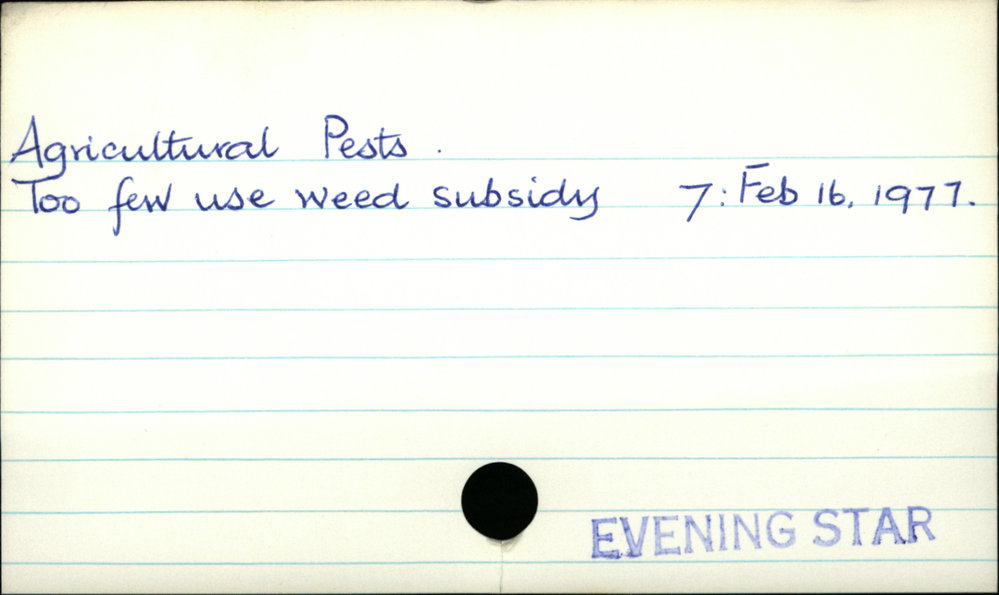 Agricultural Pests.
Too few use weed subsidy 7: Feb 16, 1977.
EVENING STAR